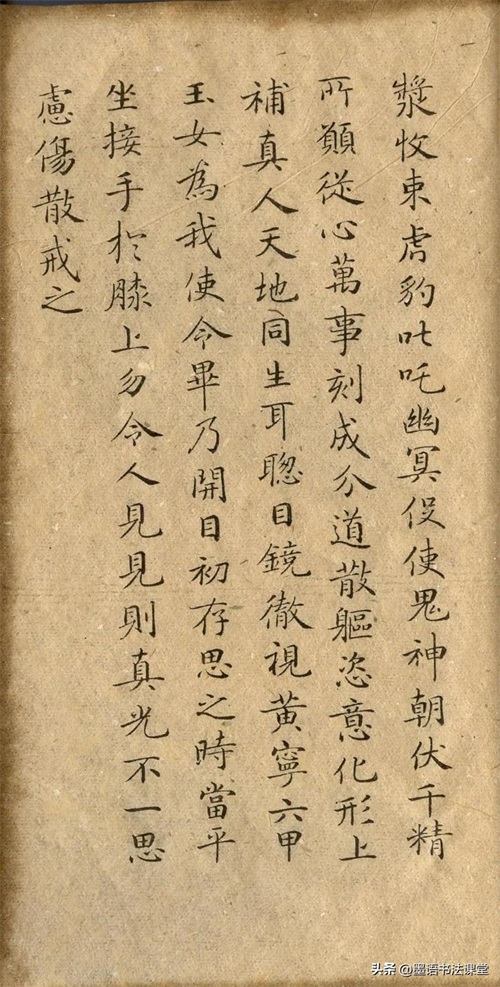 漿收束虎豹叱吒幽冥役使鬼神朝伏千精
所願從心萬事剋成分道散軀恣意化形上
補真人天地同生耳聰目鏡徹視黃寧六甲
玉女為我使令畢乃開目初存思之時當平
坐接手於膝上勿令人見見則真光不一思
慮傷散戒之
头条 @墨语书法课堂